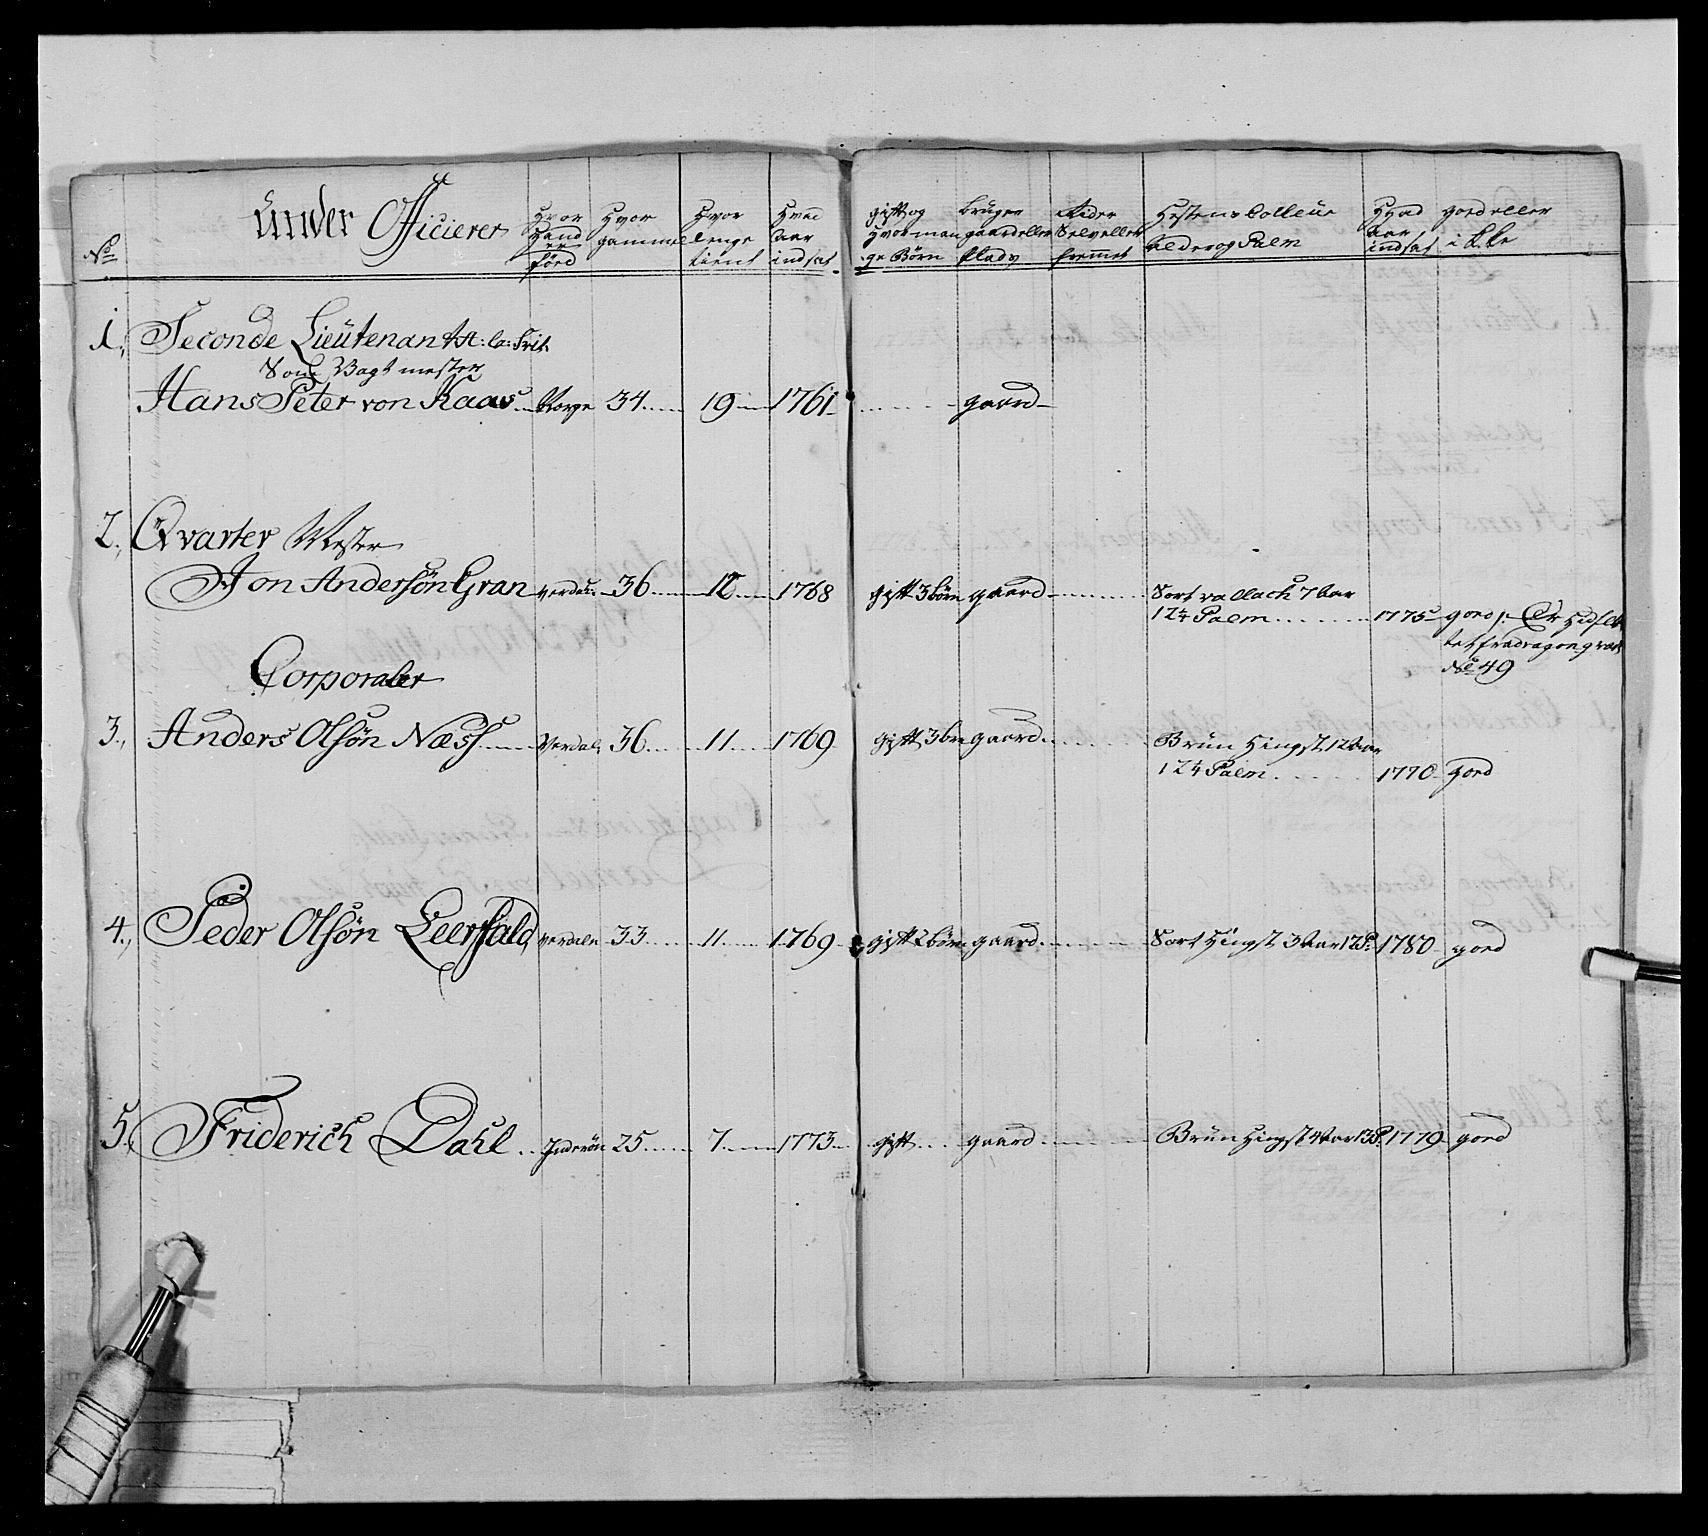 No
Under Officierer
Hvor Hand er förd
Hvor gammel
Hvor lenge tient
Hvad aar indsat
gift og hvor mange Börn
bruger gaard eller Plads
Rider Selv eller fremmet
Hestens Colleur alder og Palm
Hvad aar indsat
goed eller icke
1., Seconde Lieutenant A: la: Suit.
Som Vagtmester
Hans Peter von Kaas Norge 34 19 1761 gaard
2., Qvarter Mester
Jon Andersön Gran verdal 36 12 1768 gift 3 börn gaard Sort vallach 7 aar
12¼ Palm 1775 goed
No 49
Corporaler
3., Anders Olsön Næss Verdal 36 11 1769 gift 3 bn gaard Brun Hingst 12 aar
12¼ Palm 1770 goed
4., Peder Olsön Leersald verdaln 33 11 1769 gift 2 börn gaard Sort Hingst 3 aar 12 P. 1780 goed
5., Friderich Dahl Inderön 25 7 1773 gift gaard Brun Hingst 4 aar 13 P. 1779 goed